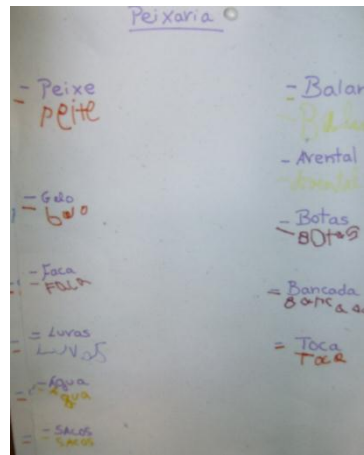 Peixaria
- Peixe
- peite
- Gelo
- Faca
- FACA
= Luvas
LUVAS
- Água
- Água
- SACOS
- SACOS
- Balan
- Avental
- Botas
- BOTAS
= Bancada
= Toca